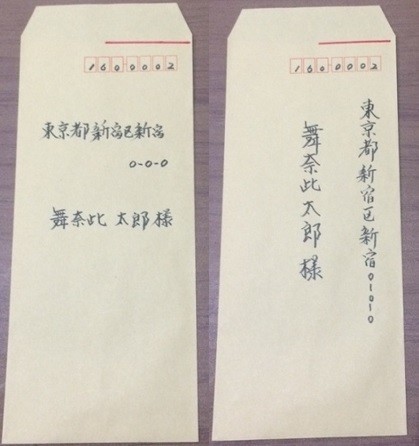 1600002
東京都新宿区新宿
0-0-0
舞奈比 太郎 様
1600002
東京都新宿区新宿0-0-0
舞奈比 太郎 様